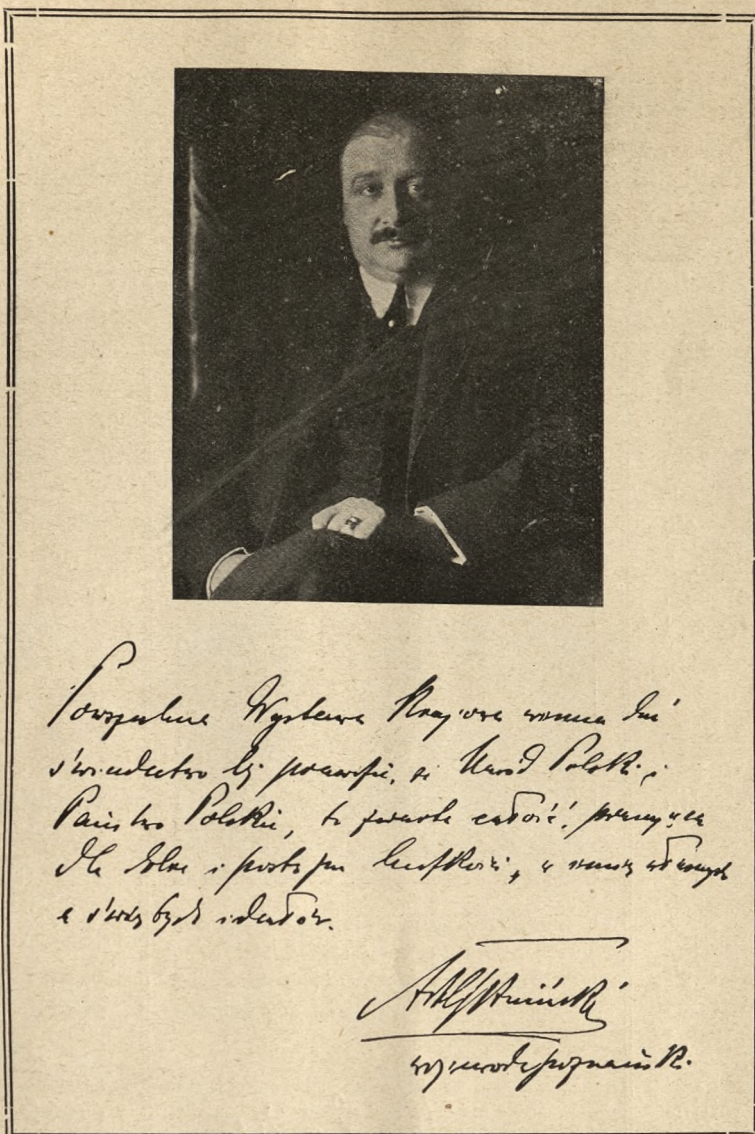 Powszechna Wystawa Krajowa winna dać
świadectwo tej prawdzie, że Naród Polski i
Państwo Polskie, to zwarta całość, pracująca
dla dobra i postępu ludzkości, w imię własnych
a świętych ideałów.
wojewoda poznański.